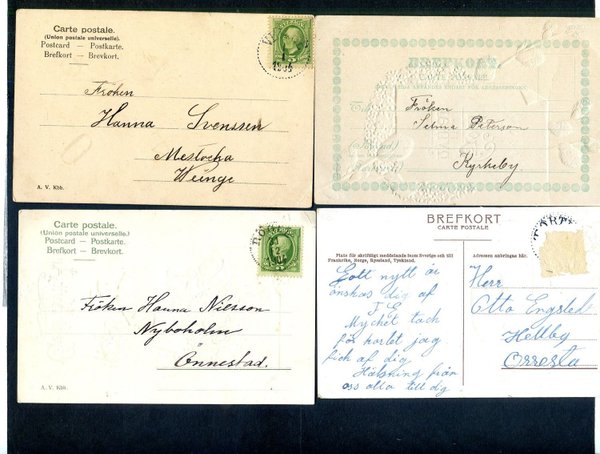 Carte postale.
(Union postale universelle.)
Postcard — Postkarte.
Brefkort — Brevkort.
1
Fröken
Hanna Svenssen
Meslocka
Weinge
A. V. Kbh.
BREFKORT
CARTE POSTALE
Fröken
Selma Peterson
Kyrkeby
Carte postale.
(Union postale universelle.)
Postcard — Postkarte.
Brefkort — Brevkort.
Fröken Hanna Nielsson
Nyboholm
Önnestad.
A. V. Kbh.
BREFKORT
CARTE POSTALE
Plats för skriftligt meddelande inom Sverige och till
Frankrike, Norge, Ryssland, Tyskland.
Adressen anbringas här.
Gott nytt år
önskas dig af
J E
Mycket tack
för kortet jag
fick af dig
Hälsning från
oss alla till dig
Herr
Otto Engslet
Hellby
Orresta